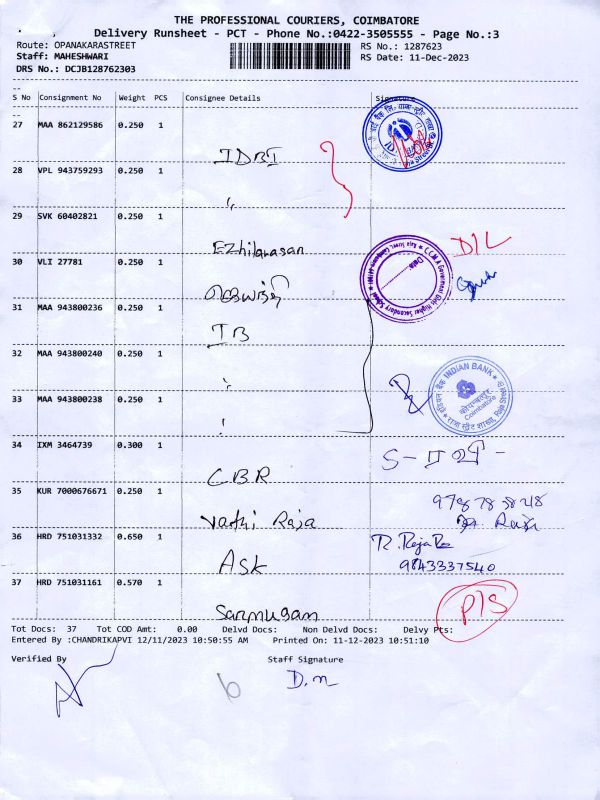 THE PROFESSIONAL COURIERS, COIMBATORE
Delivery Runsheet - PCT - Phone No.:0422-3505555 - Page No.:3
Route: OPANAKARASTREET
RS No.: 1287623
Staff: MAHESHWARI
RS Date: 11-Dec-2023
DRS No.: DCJB128762303
S No Consignment No Weight PCS Consignee Details Signature
27 MAA 862129586 0.250 1
IDBI
28 VPL 943759293 0.250 1
"
29 SVK 60402821 0.250 1
Ezhilarasan
D/L
30 VLI 27781 0.250 1
ஜெயந்தி
C.C.M.A Government Girls Higher Secondary School
Raja Street, Coimbatore
31 MAA 943800236 0.250 1
IB
32 MAA 943800240 0.250 1
"
INDIAN BANK
कोयम्बत्तूर
Coimbatore
33 MAA 943800238 0.250 1
"
34 IXM 3464739 0.300 1
CBR
35 KUR 7000676671 0.250 1
Raja
36 HRD 751031332 0.650 1
ASK
9843337540
37 HRD 751031161 0.570 1
Sanmugan
P/S
Tot Docs: 37 Tot COD Amt: 0.00 Delvd Docs: Non Delvd Docs: Delvy Pts:
Entered By :CHANDRIKAPVI 12/11/2023 10:50:55 AM Printed On: 11-12-2023 10:51:10
Verified By Staff Signature
D.m